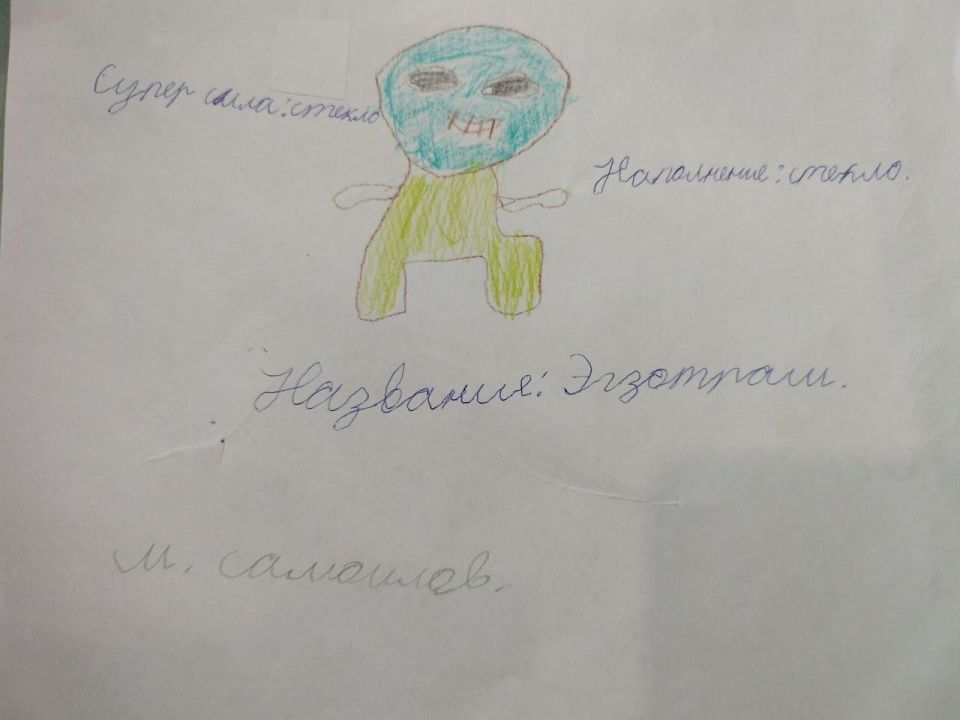 Супер сила: стекло
Наполнение: стекло.
Названия: Эгзотраш.
М. самоилов.